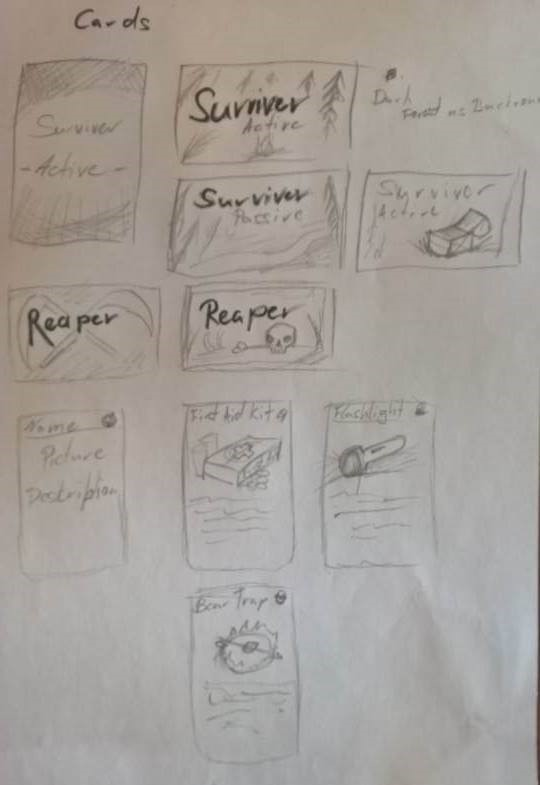 Cards
Surviver
- Active -
Surviver
Active
Dark
Forest as
Surviver
Passive
Surviver
Active
Reaper
Reaper
Name
Picture
Description
First Aid Kit
Flashlight
Bear Trap